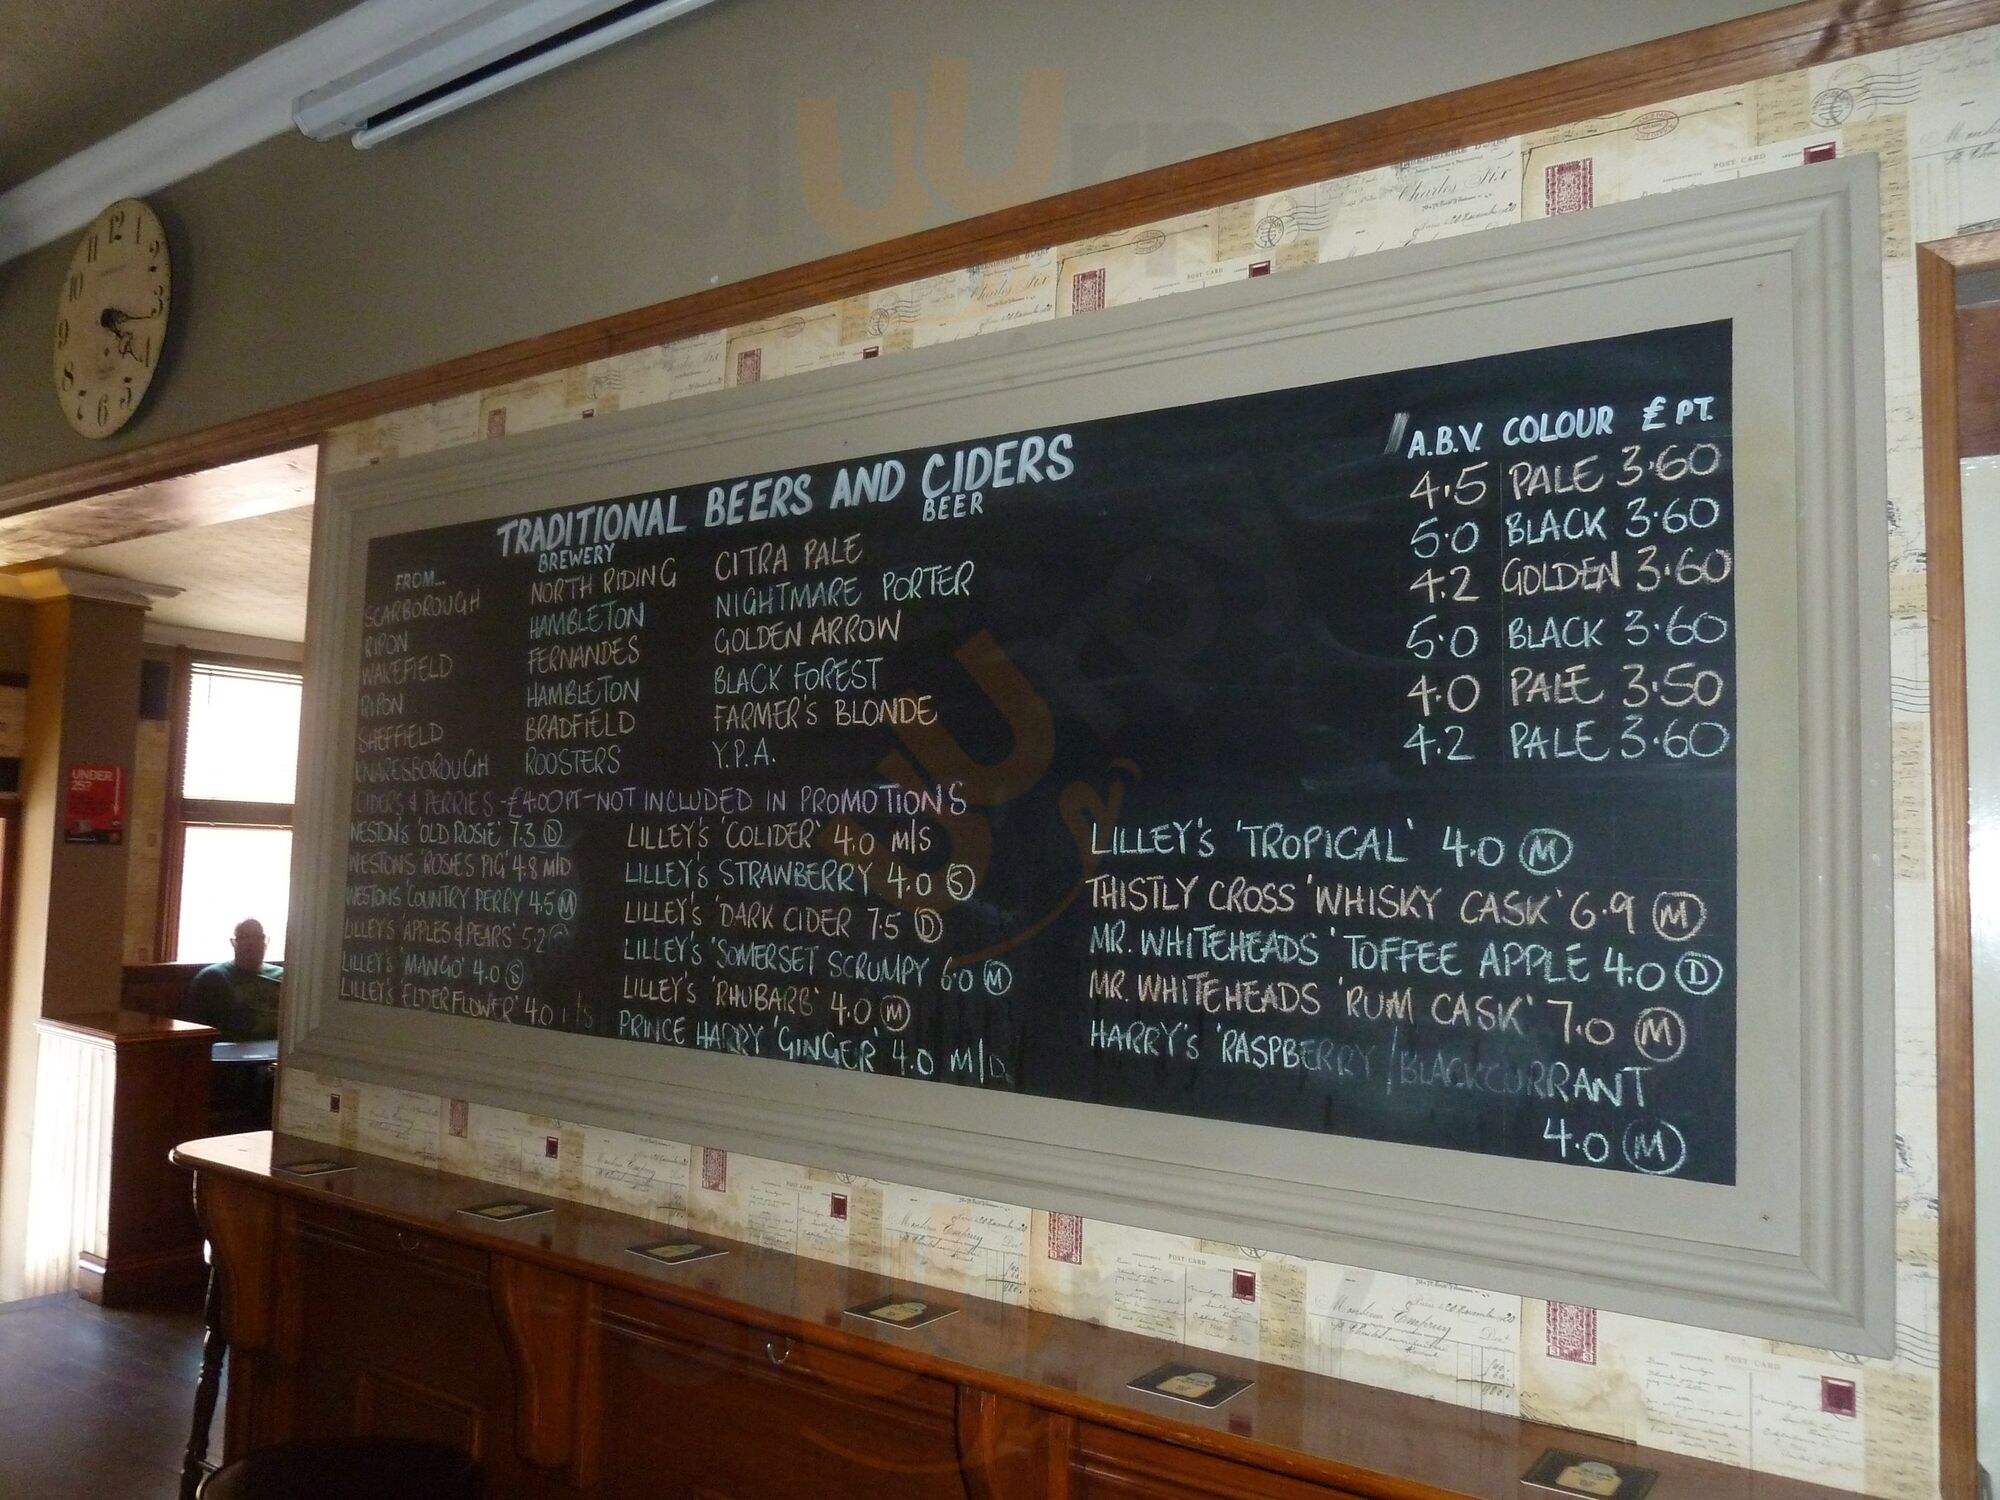 TRADITIONAL BEERS AND CIDERS
FROM... BREWERY BEER A.B.V. COLOUR £ PT.
SCARBOROUGH NORTH RIDING CITRA PALE 4.5 PALE 3.60
RIPON HAMBLETON NIGHTMARE PORTER 5.0 BLACK 3.60
WAKEFIELD FERNANDES GOLDEN ARROW 4.2 GOLDEN 3.60
RIPON HAMBLETON BLACK FOREST 5.0 BLACK 3.60
SHEFFIELD BRADFIELD FARMER'S BLONDE 4.0 PALE 3.50
KNARESBOROUGH ROOSTERS Y.P.A. 4.2 PALE 3.60
CIDERS & PERRIES - £4.00PT - NOT INCLUDED IN PROMOTIONS
WESTON'S 'OLD ROSIE' 7.3 D
WESTONS 'ROSIES PIG' 4.8 M/D
WESTONS 'COUNTRY PERRY 4.5 M
LILLEY'S 'APPLES & PEARS' 5.2
LILLEY'S 'MANGO' 4.0 S
LILLEY'S 'ELDERFLOWER' 4.0
LILLEY'S 'COLIDER' 4.0 M/S
LILLEY'S STRAWBERRY 4.0 S
LILLEY'S 'DARK CIDER 7.5 D
LILLEY'S 'SOMERSET SCRUMPY 6.0 M
LILLEY'S 'RHUBARB' 4.0 M
PRINCE HARRY 'GINGER' 4.0 M/D
LILLEY'S 'TROPICAL' 4.0 M
THISTLY CROSS 'WHISKY CASK' 6.9 M
MR. WHITEHEADS 'TOFFEE APPLE 4.0 D
MR. WHITEHEADS 'RUM CASK' 7.0 M
HARRY'S 'RASPBERRY/BLACKCURRANT
4.0 M
UNDER
25?
12 1 2 3 4 5 6 7 8 9 10 11
POST CARD
Charles Fix